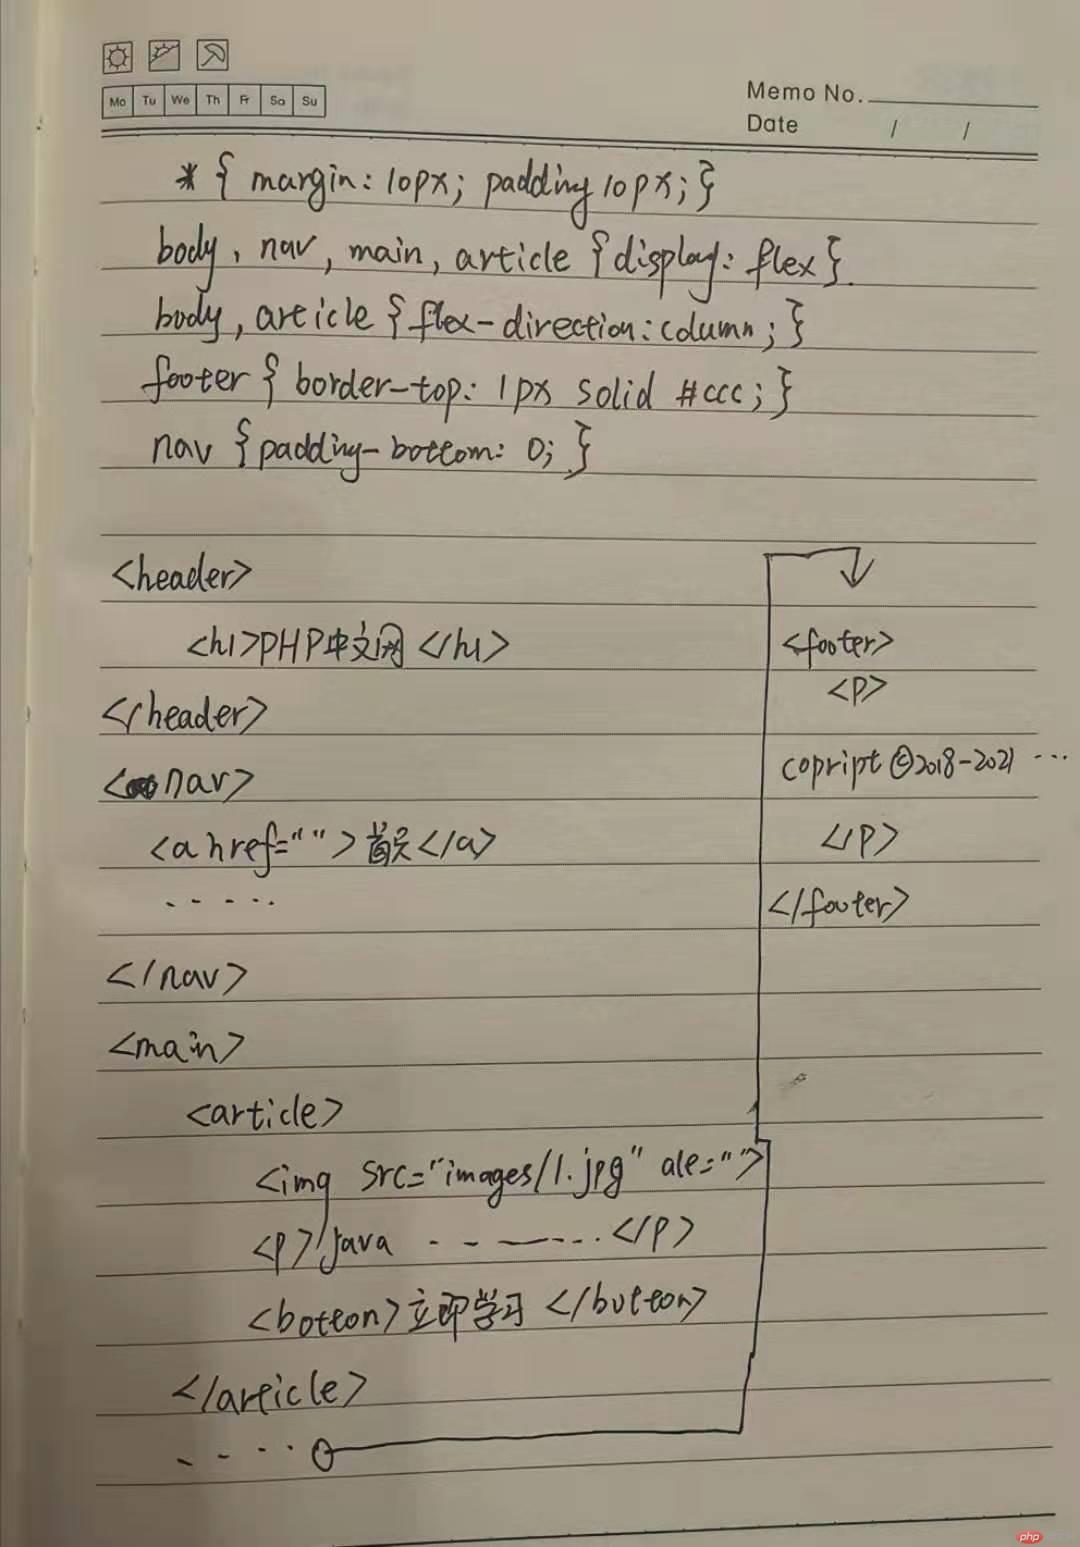 Mo Tu We Th Fr Sa Su
Memo No.
Date / /
* { margin: 10px; padding 10px; }
body, nav, main, article { display: flex }
body, article { flex-direction: column; }
footer { border-top: 1px solid #ccc; }
nav { padding-bottom: 0; }
<header>
<h1>PHP中文网</h1>
</header>
<nav>
<a href="">首页</a>
.....
</nav>
<main>
<article>
<img src="images/1.jpg" alt="">
<p>java ......</p>
<botton>立即学习</button>
</article>
....
<footer>
<p>
copript ©2018-2021 ...
</p>
</footer>
php